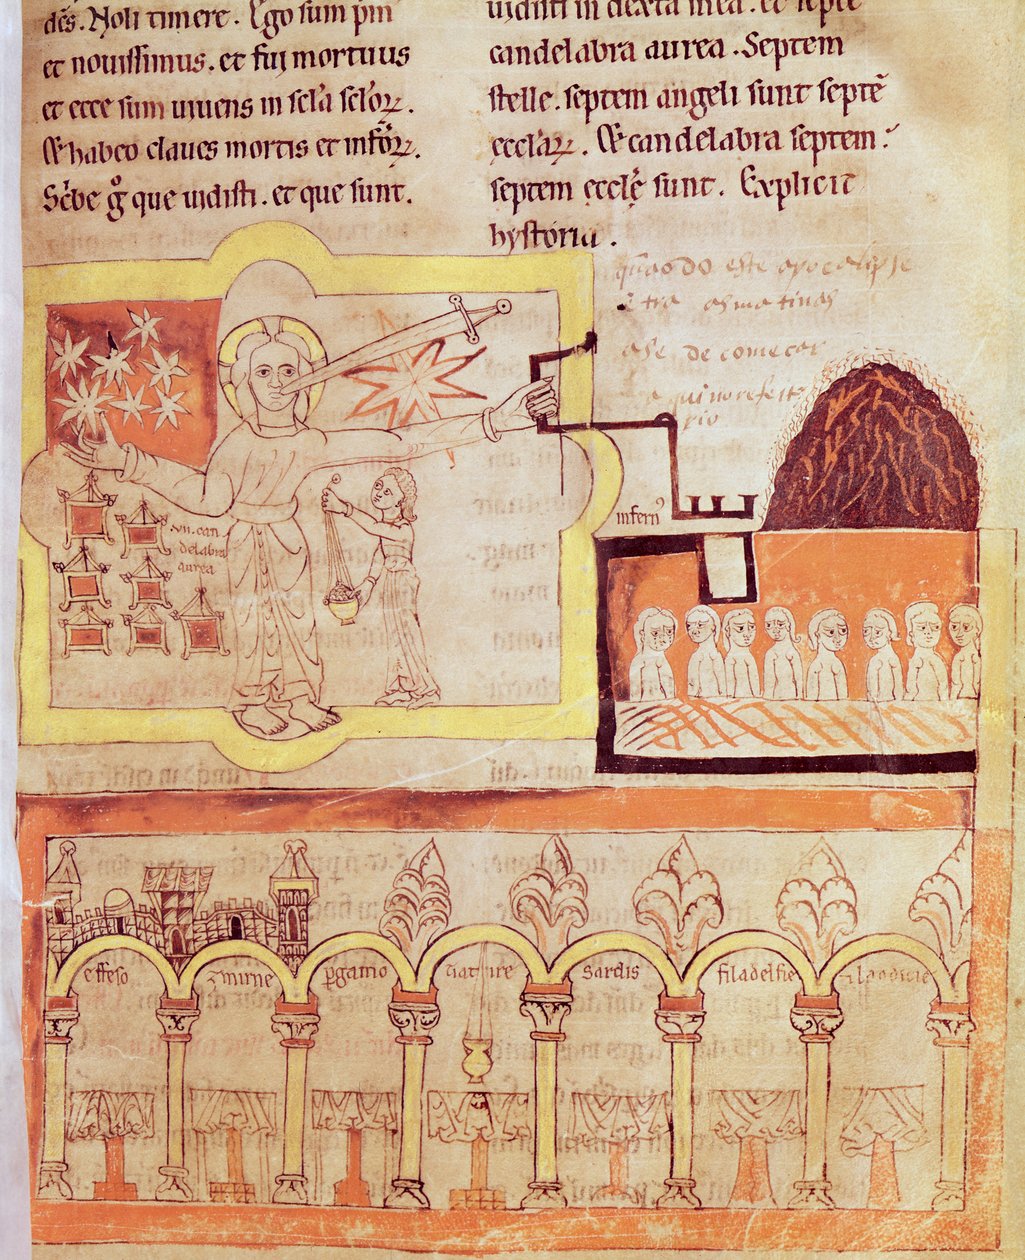 dēs. Noli timere. Ego sum p̄m
et nouissimus. et fuj mortuus
et ecce sum uiuens in scl̄a scl̄oꝝ.
Et habeo claues mortis et inf̄oꝝ.
Sc̄be g̊ que uidisti. et que sunt.
uidisti in dexta mea. et septē
candelabra aurea. Septem
stelle. septem angeli sunt septē
eccl̄aꝝ. Et candelabra septem:
septem eccl̄ę sunt. Explicit
hystoria.
este apocalipse
as matinas
de comecar
qui no refeito
rio
infern᷒
vii. can
delabra
aurea
effeso
zmirne
ꝑgamo
tiatire
sardis
filadelfie
laodicie